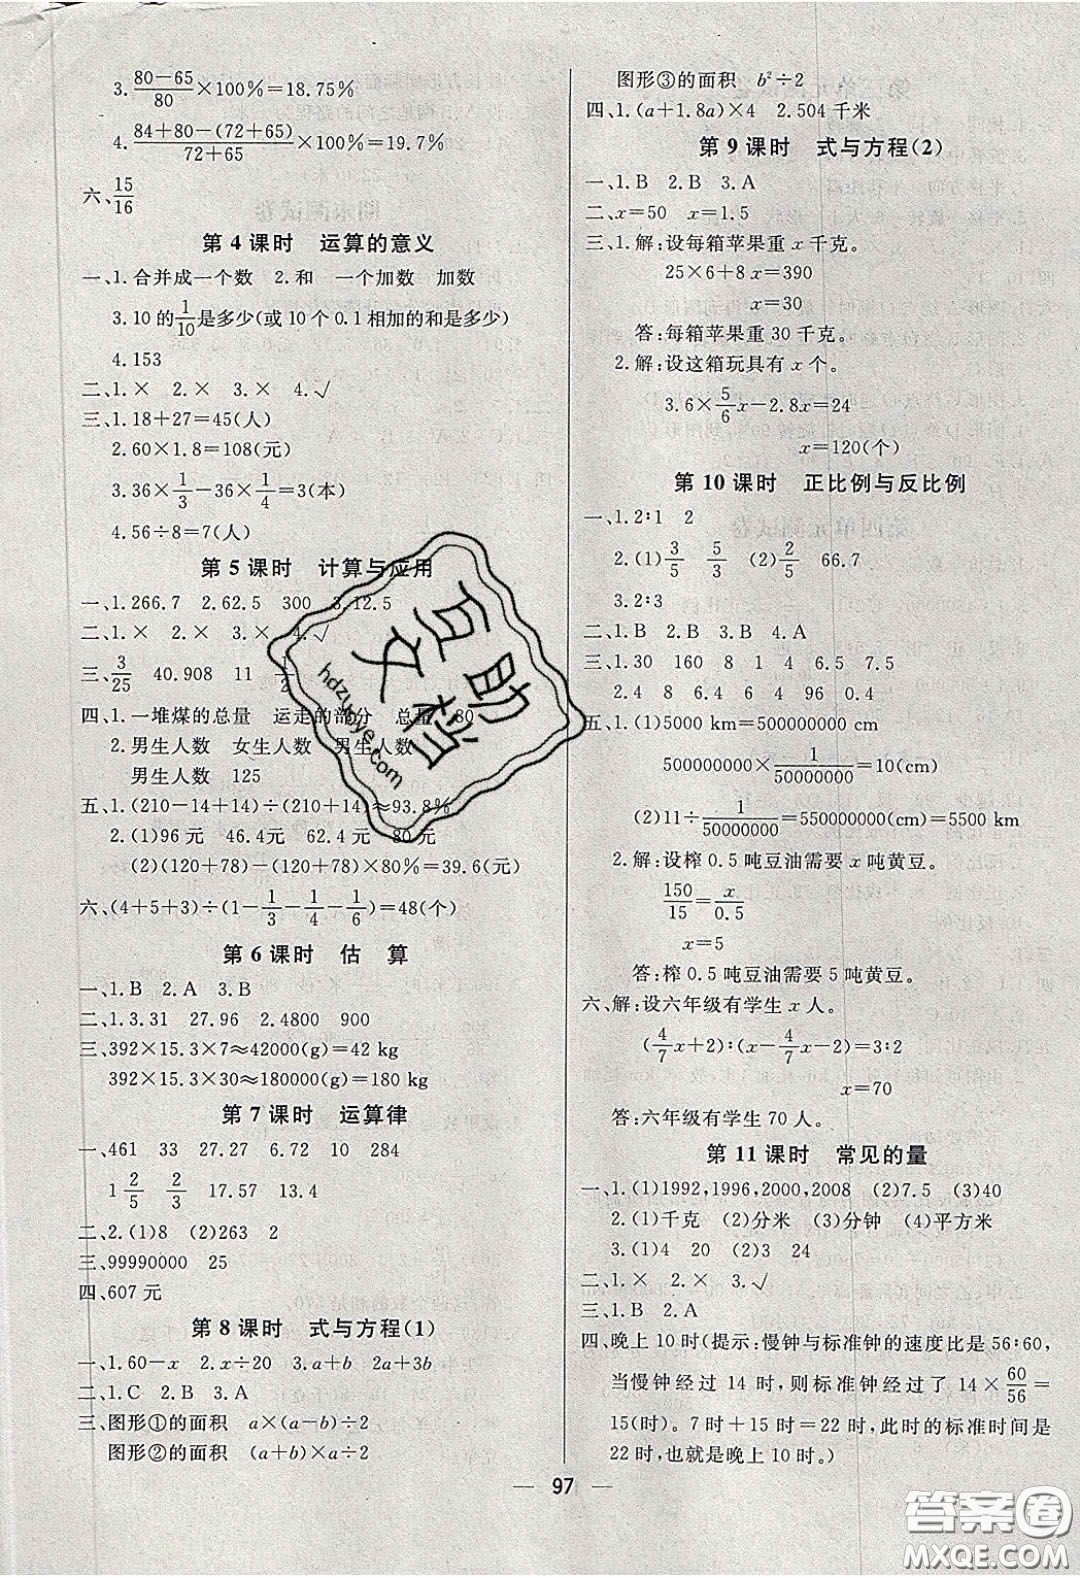 3. (80-65)/80×100%=18.75%
4. (84+80-(72+65))/(72+65)×100%=19.7%
六、15/16
第 4 课时　运算的意义
一、1.合并成一个数　2.和　一个加数　加数
3.10 的 1/10 是多少(或 10 个 0.1 相加的和是多少)
4.153
二、1.×　2.×　3.×　4.√
三、1.18+27=45(人)
2.60×1.8=108(元)
3.36×1/3-36×1/4=3(本)
4.56÷8=7(人)
第 5 课时　计算与应用
一、1.266.7　2.62.5　300　3.12.5
二、1.×　2.×　3.×　4.√
三、3/25　40.908　11　1/2
四、1.一堆煤的总量　运走的部分　总量　80
2.男生人数　女生人数　男生人数
男生人数　125
五、1.(210-14+14)÷(210+14)≈93.8%
2.(1)96 元　46.4元　62.4 元　80元
(2)(120+78)-(120+78)×80%=39.6(元)
六、(4+5+3)÷(1-1/3-1/4-1/6)=48(个)
第 6 课时　估　算
一、1.B　2.A　3.B
二、1.3.31　27.96　2.4800　900
三、392×15.3×7≈42000(g)=42 kg
392×15.3×30≈180000(g)=180 kg
第 7 课时　运算律
一、461　33　27.27　6.72　10　284
1 2/5　2/3　17.57　13.4
二、2.(1)8　(2)263　2
三、99990000　25
四、607 元
第 8 课时　式与方程(1)
一、1.60-x　2.x÷20　3.a+b　2a+3b
二、1.C　2.B　3.A
三、图形①的面积　a×(a-b)÷2
图形②的面积　(a+b)×a÷2
图形③的面积　b²÷2
四、1.(a+1.8a)×4　2.504 千米
第 9 课时　式与方程(2)
一、1.B　2.B　3.A
二、x=50　x=1.5
三、1.解:设每箱苹果重 x 千克。
25×6+8x=390
x=30
答:每箱苹果重 30 千克。
2.解:设这箱玩具有 x 个。
3.6×5/6x-2.8x=24
x=120(个)
第 10 课时　正比例与反比例
一、1.2∶1　2
2.(1)3/5　5/3　(2)2/5　66.7
3.2∶3
二、1.B　2.B　3.B　4.A
三、1.30　160　8　1　4　6.5　7.5
2.4　8　6.4　6　4　96　0.4
五、1.(1)5000 km=500000000 cm
500000000×1/50000000=10(cm)
(2)11÷1/50000000=550000000(cm)=5500 km
2.解:设榨 0.5 吨豆油需要 x 吨黄豆。
150/15=x/0.5
x=5
答:榨 0.5 吨豆油需要 5 吨黄豆。
六、解:设六年级有学生 x 人。
(4/7x+2)∶(x-4/7x-2)=3∶2
x=70
答:六年级有学生 70 人。
第 11 课时　常见的量
一、1.(1)1992,1996,2000,2008　(2)7.5　(3)40
2.(1)千克　(2)分米　(3)分钟　(4)平方米
3.(1)4　20　(2)3　24
二、1.×　2.×　3.√
三、1.B　2.A
四、晚上 10 时(提示:慢钟与标准钟的速度比是 56∶60,
当慢钟经过 14 时,则标准钟经过了 14×60/56=
15(时)。7 时+15 时=22 时,此时的标准时间是
22 时,也就是晚上 10 时。)
97
互助文档
hdzuoye.com
答案圈
MXQE.COM